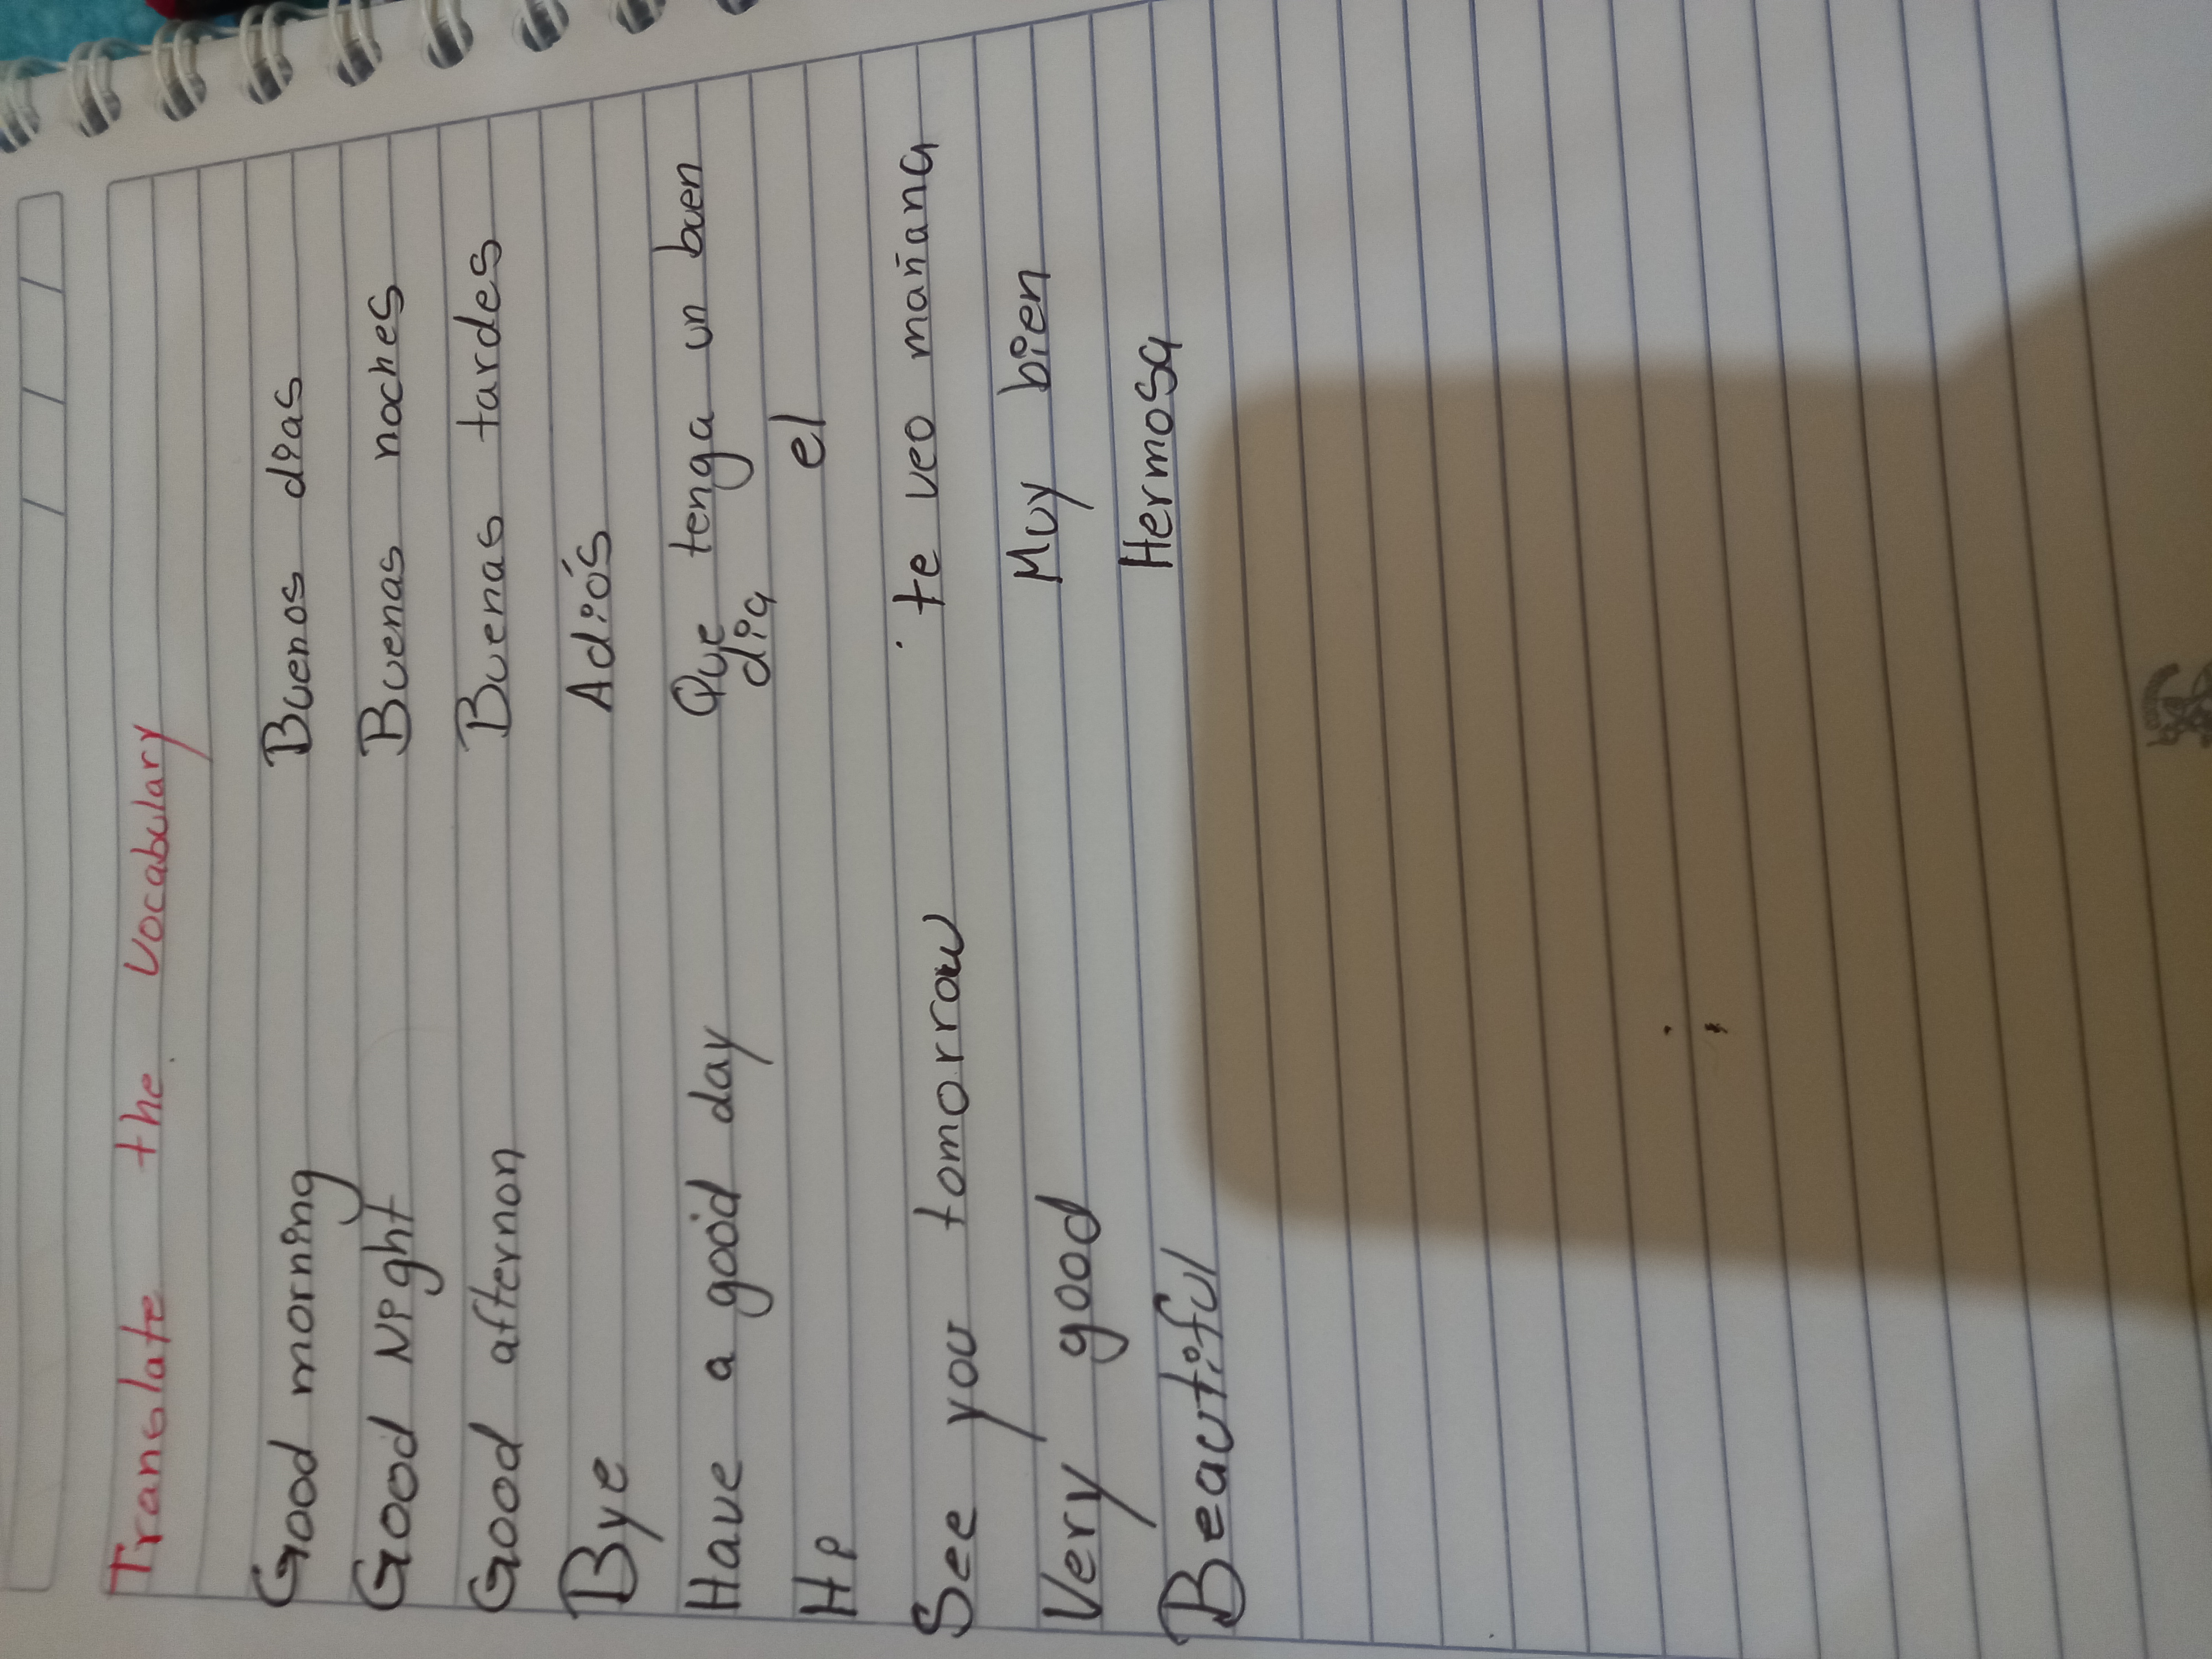 Translate the vocabulary
Good morning Buenos dias
Good Night Buenas noches
Good afternon Buenas tardes
Bye Adiós
Have a good day Que tenga un buen
dia
Hi el
See you tomorrow te veo mañana
Very good Muy bien
Beautiful Hermosa